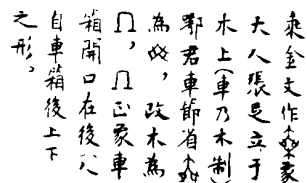 乘金文作象
大人張足立于
木上(車乃木制)
鄂君車節省
為,改木為
,正象車
箱開口在後人
自車箱後上下
之形。